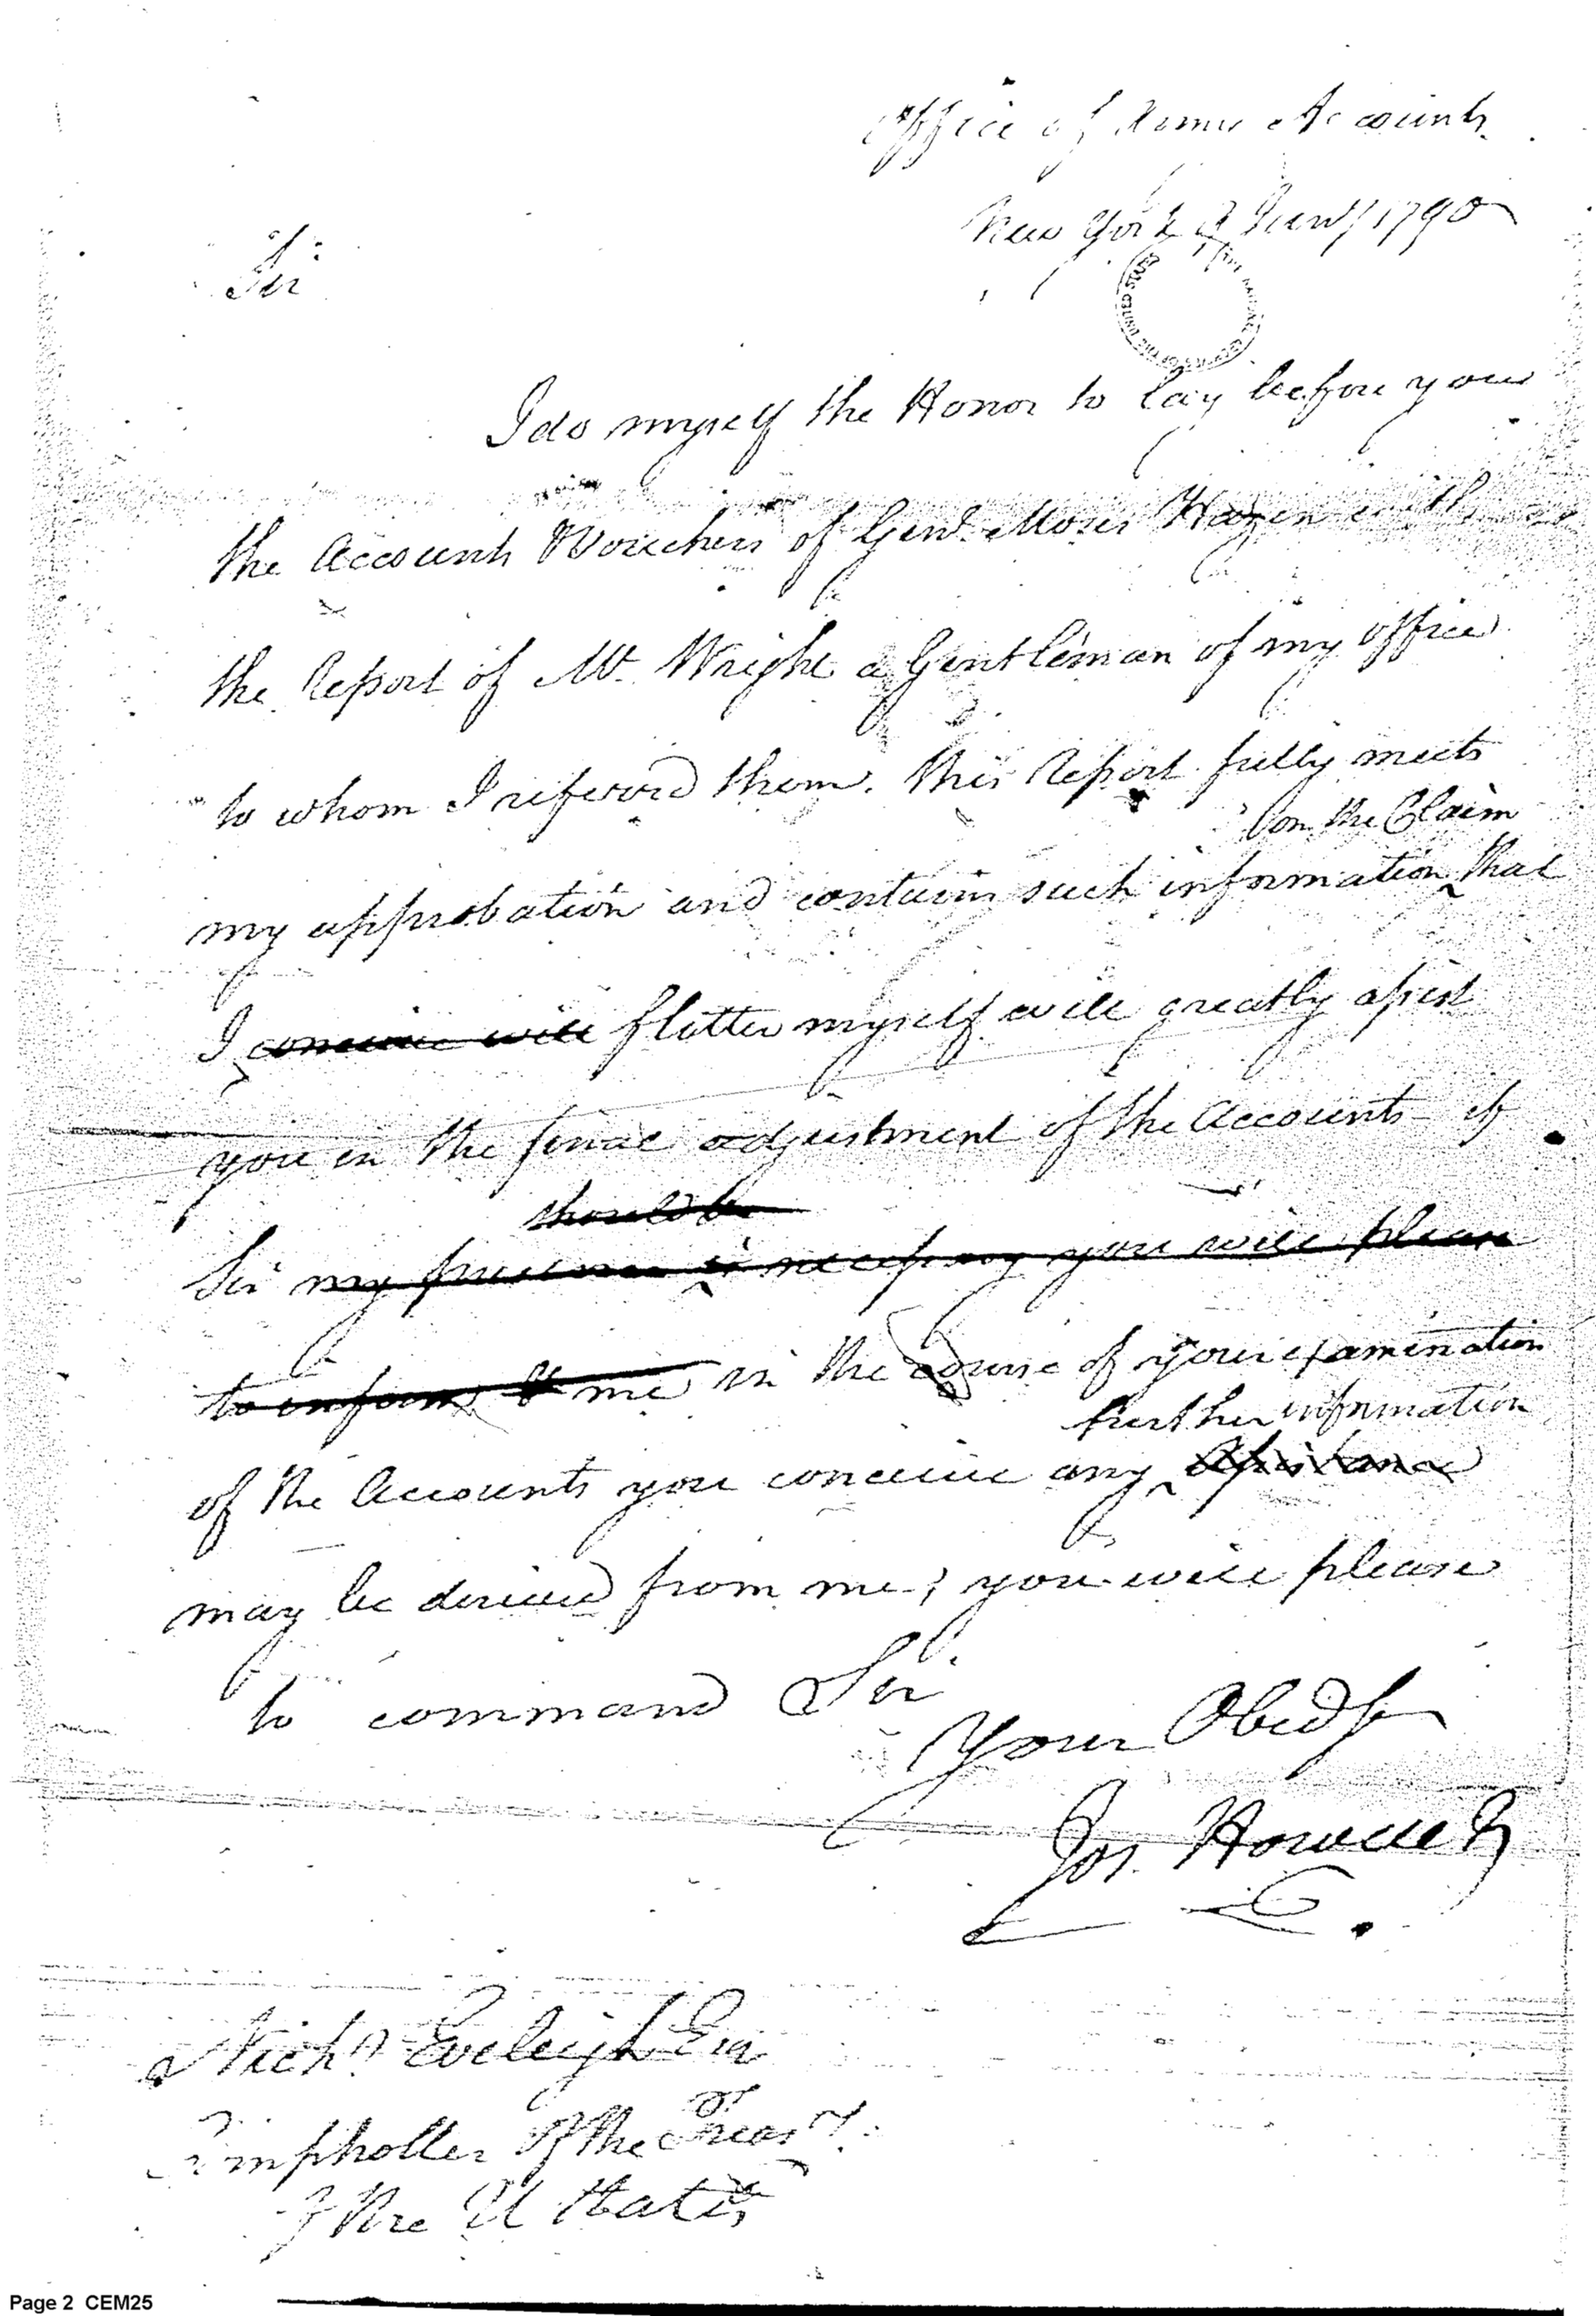 Office of Army Accounts
New York 9 Jany 1790
Sir
I do myself the Honor to lay before you
the Accounts & Vouchers of Genl. Moses Hazen with
the Report of Mr. Wright a Gentleman of my office
to whom I referred them. This Report fully meets
on the Claim
my approbation and contains such information that
I conceive will flatter myself will greatly assist
you in the final adjustment of the Accounts - if
should be
Sir my presence is necessary you will please
to inform me in the course of your examination
further information
of the Accounts you conceive any Assistance
may be derived from me; you will please
to command Sir
Your Obedt
Jos. Howell Jr
Nichs. Eveleigh Esq
Comptroller Of the Treasy.
of the U States
Page 2 CEM25